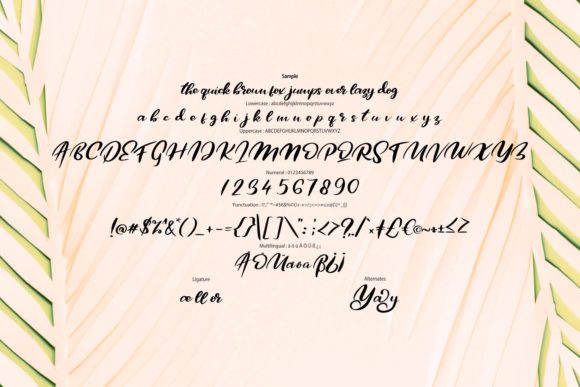 Sample
the quick brown fox jumps over lazy dog
Lowercase : abcdefghijklmnopqrstuvwxyz
a b c d e f g h i j k l m n o p q r s t u v w x y z
Uppercase : ABCDEFGHIJKLMNOPQRSTUVWXYZ
ABCDEFGHIJKLMNOPQRSTUVWXYZ
Numeral : 0123456789
1234567890
Punctuation :
!@#$%&*()_+-={}\[]\":;<>?,./
Multilingual :
ÄÖÜäöüß¿¡
Ligature
æ ll or
Alternates
Yazy